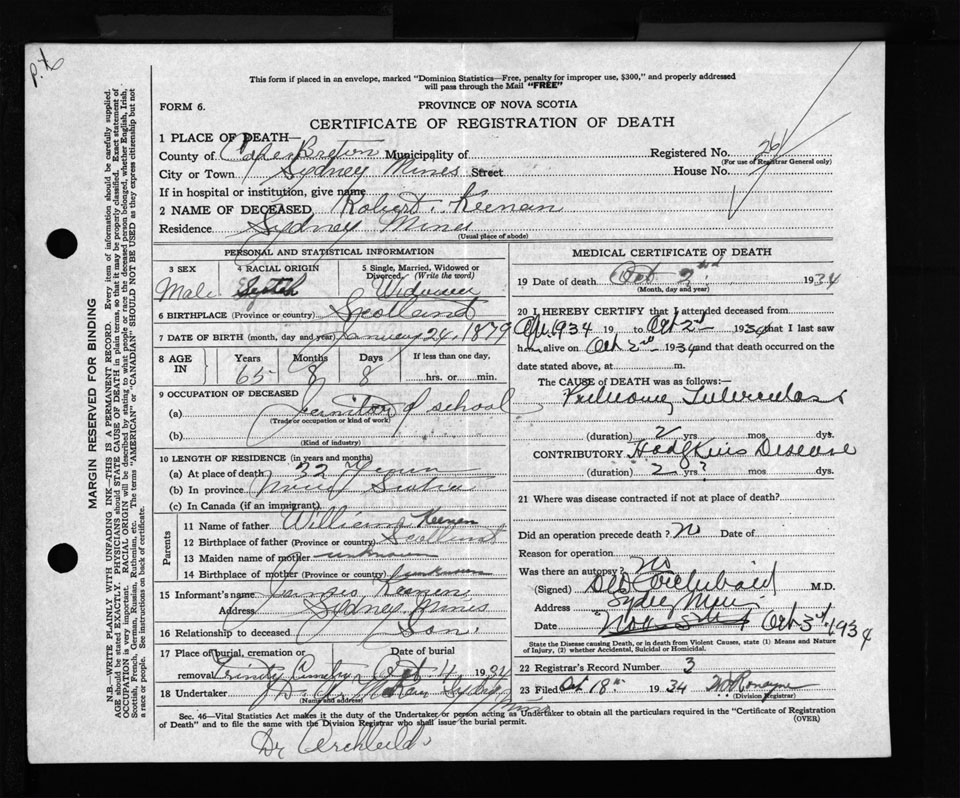 p.t
This form if placed in an envelope, marked "Dominion Statistics—Free, penalty for improper use, $300," and properly addressed
will pass through the Mail "FREE"
FORM 6.
PROVINCE OF NOVA SCOTIA
CERTIFICATE OF REGISTRATION OF DEATH
1 PLACE OF DEATH—
County of Cape Breton Municipality of Registered No. 26
(For use of Registrar General only)
City or Town Sydney Mines Street House No.
If in hospital or institution, give name
2 NAME OF DECEASED Robert Keenan
Residence Sydney Mines
(Usual place of abode)
PERSONAL AND STATISTICAL INFORMATION
3 SEX
Male
4 RACIAL ORIGIN
Scotch
5 Single, Married, Widowed or
Divorced. (Write the word)
Widower
6 BIRTHPLACE (Province or country) Scotland
7 DATE OF BIRTH (month, day and year) January 24, 1879
8 AGE
IN
Years Months Days If less than one day,
65 8 8 hrs. or min.
9 OCCUPATION OF DECEASED
(a) Janitor of school
(Trade or occupation or kind of work)
(b)
(Kind of industry)
10 LENGTH OF RESIDENCE (in years and months)
(a) At place of death 32 Years
(b) In province Nova Scotia
(c) In Canada (if an immigrant)
Parents
11 Name of father William Keenan
12 Birthplace of father (Province or country) Scotland
13 Maiden name of mother unknown
14 Birthplace of mother (Province or country) unknown
15 Informant's name James Keenan
Address Sydney Mines
16 Relationship to deceased Son
17 Place of burial, cremation or removal Date of burial
Trinity Oct 4 1934
18 Undertaker Sydney Mines
(Name and address)
MEDICAL CERTIFICATE OF DEATH
19 Date of death Oct 2nd 1934
(Month, day and year)
20 I HEREBY CERTIFY that I attended deceased from
1934 19 to Oct 2nd 1934 that I last saw
h alive on Oct 2nd 1934 and that death occurred on the
date stated above, at m.
The CAUSE OF DEATH was as follows:
Pulmonary Tuberculosis
(duration) 2 yrs. mos. dys.
CONTRIBUTORY Hodgkins Disease
(duration) 2 yrs ? mos. dys.
21 Where was disease contracted if not at place of death?
Did an operation precede death? No Date of
Reason for operation
Was there an autopsy? No
(Signed) Archibald M.D.
Address Sydney Mines
Date Nova Scotia Oct 3rd 1934
State the Disease causing Death, or in death from Violent Causes, state (1) Means and Nature
of Injury, (2) whether Accidental, Suicidal or Homicidal.
22 Registrar's Record Number 3
23 Filed Oct 18th 1934
(Division Registrar)
Sec. 46—Vital Statistics Act makes it the duty of the Undertaker or person acting as Undertaker to obtain all the particulars required in the "Certificate of Registration
of Death" and to file the same with the Division Registrar who shall issue the burial permit. (OVER)
Dr Archibald
MARGIN RESERVED FOR BINDING
N.B.—WRITE PLAINLY WITH UNFADING INK—THIS IS A PERMANENT RECORD. Every item of information should be carefully supplied.
AGE should be stated EXACTLY. PHYSICIANS should STATE CAUSE OF DEATH in plain terms, so that it may be properly classified. Exact statement of
OCCUPATION is very important. RACIAL ORIGIN will be described by stating to what people or race the deceased person belonged, whether English, Irish,
Scottish, French, German, Russian, Ruthenian, etc. The terms "AMERICAN" or "CANADIAN" SHOULD NOT BE USED as they express citizenship but not
a race or people. See instructions on back of certificate.